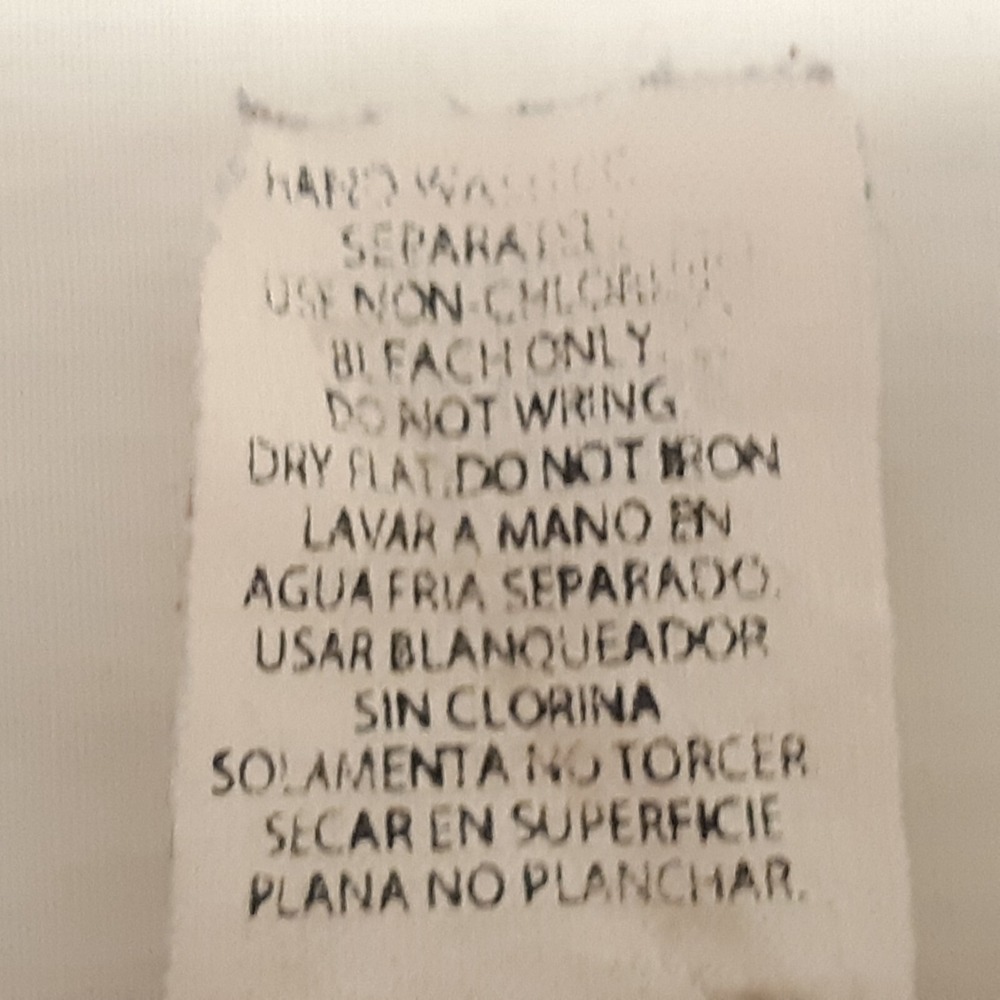 HAND WASH
SEPARATELY
USE NON-CHLORINE
BLEACH ONLY
DO NOT WRING
DRY FLAT. DO NOT IRON
LAVAR A MANO EN
AGUA FRIA SEPARADO.
USAR BLANQUEADOR
SIN CLORINA
SOLAMENTA NO TORCER
SECAR EN SUPERFICIE
PLANA NO PLANCHAR.